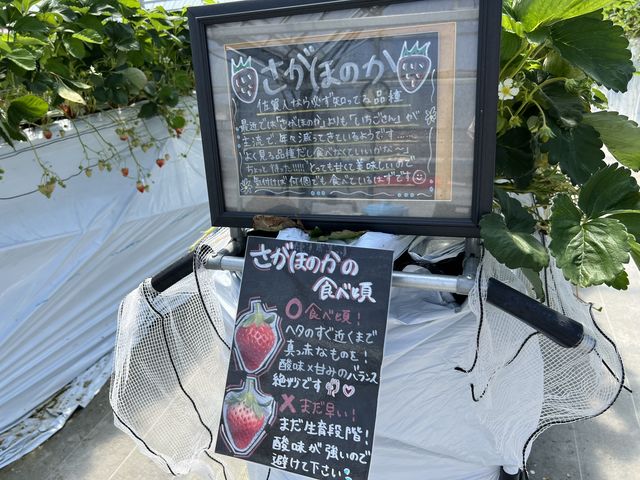 さがほのか
佐賀人なら必ず知ってる品種
最近では「さがほのか」よりも「いちごさん」が
主流で、年々減ってきているようです……
よく見る品種だし食べなくていいかな~
ちょっと待った!!!! とっても甘くて美味しいので
気付けば何個でも食べているはずです
さがほのかの
食べ頃
○食べ頃!
ヘタのすぐ近くまで
真っ赤なものを!
酸味×甘みのバランス
絶妙です
×まだ早い!
まだ生育段階!
酸味が強いので
避けて下さい。